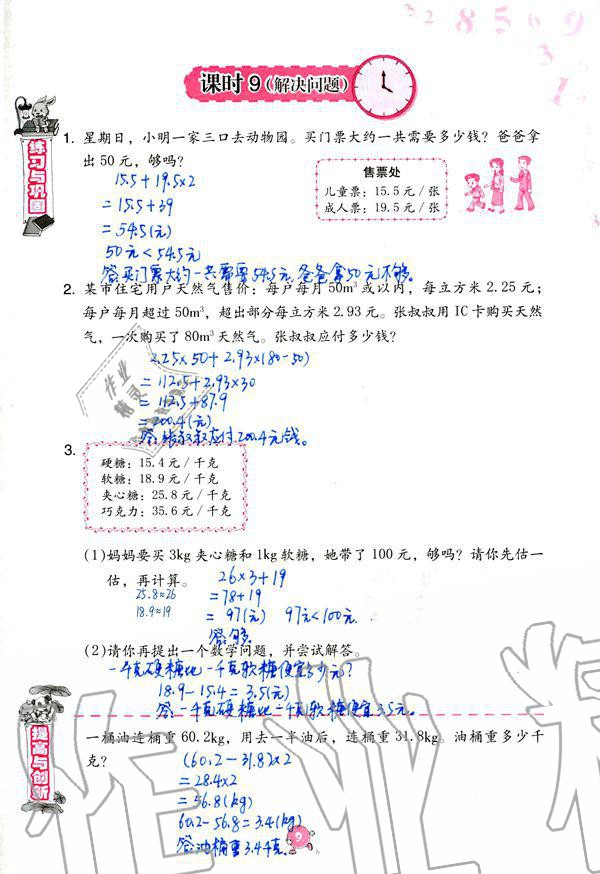 3 2 8 5 6 9
3
1
课时9(解决问题)
练习与巩固
1. 星期日，小明一家三口去动物园。买门票大约一共需要多少钱？爸爸拿
出 50 元，够吗？
售票处
儿童票：15.5 元/张
成人票：19.5 元/张
15.5+19.5×2
=15.5+39
=54.5(元)
50元<54.5元
答:买门票大约一共需要54.5元,爸爸拿50元不够。
2. 某市住宅用户天然气售价：每户每月 50m³ 或以内，每立方米 2.25 元；
每户每月超过 50m³，超出部分每立方米 2.93 元。张叔叔用 IC 卡购买天然
气，一次购买了 80m³ 天然气。张叔叔应付多少钱？
2.25×50+2.93×(80-50)
=112.5+2.93×30
=112.5+87.9
=200.4(元)
答:张叔叔应付200.4元钱。
作业
精灵
3.
硬糖：15.4 元/千克
软糖：18.9 元/千克
夹心糖：25.8 元/千克
巧克力：35.6 元/千克
(1)妈妈要买 3kg 夹心糖和 1kg 软糖，她带了 100 元，够吗？请你先估一
估，再计算。
25.8≈26
18.9≈19
26×3+19
=78+19
=97(元) 97元<100元
答:够。
(2)请你再提出一个数学问题，并尝试解答。
一千克硬糖比一千克软糖便宜多少元?
18.9-15.4=3.5(元)
答:一千克硬糖比一千克软糖便宜3.5元。
提高与创新
一桶油连桶重 60.2kg，用去一半油后，连桶重 31.8kg。油桶重多少千
克？
(60.2-31.8)×2
=28.4×2
=56.8(kg)
60.2-56.8=3.4(kg)
答:油桶重3.4千克。
9
作业